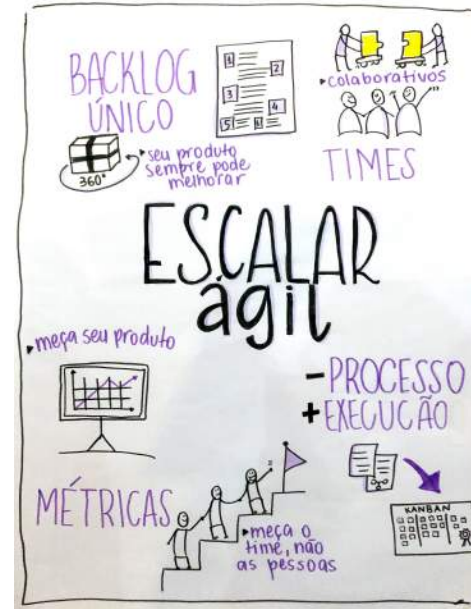 BACKLOG
ÚNICO
1
2
3
4
5
6
360°
seu produto
sempre pode
melhorar
colaborativos
TIMES
ESCALAR
ágil
meça seu produto
MÉTRICAS
- PROCESSO
+ EXECUÇÃO
KANBAN
meça o
time, não
as pessoas